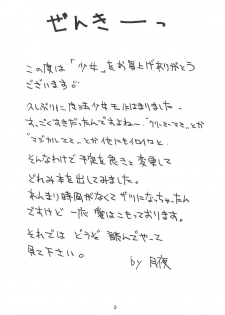 ぜんきーっ
この度は「少女」をお買上げありがとう
ございます♪
久しぶりに魔法少女モノにはまりました。
すっごくすきだったんですよねー、"クリーミーマミ"とか
"マジカルエミ"とか他にもイロイロと
そんなわけで予定を急きょ変更して
どれみ本を出してみました。
あんまり時間がなくてザツになっちゃったん
ですけど一応愛はこもっております。
それではどうぞ読んでやって
見て下さい。
by 月夜